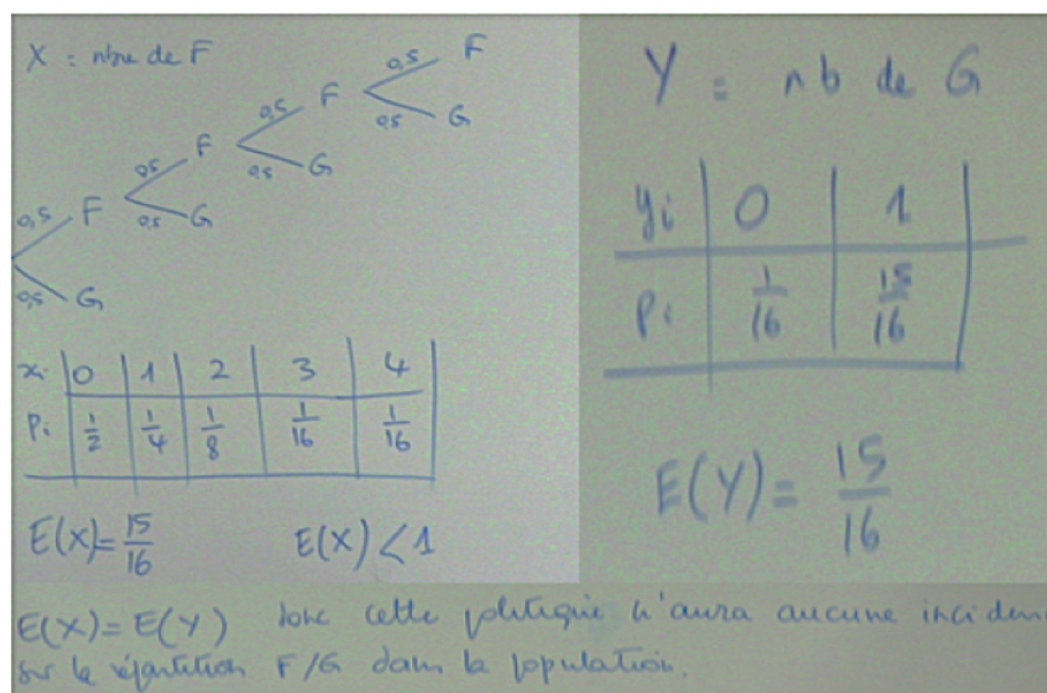 X : nbre de F
0,5 F
0,5 F 0,5 G
0,5 F 0,5 G
0,5 F 0,5 G
0,5 G
xi 0 1 2 3 4
Pi 1/2 1/4 1/8 1/16 1/16
E(X)=15/16 E(X)<1
Y : nb de G
yi 0 1
Pi 1/16 15/16
E(Y)= 15/16
E(X)=E(Y) donc cette politique n'aura aucune inciden
sur la répartition F/G dans la population.